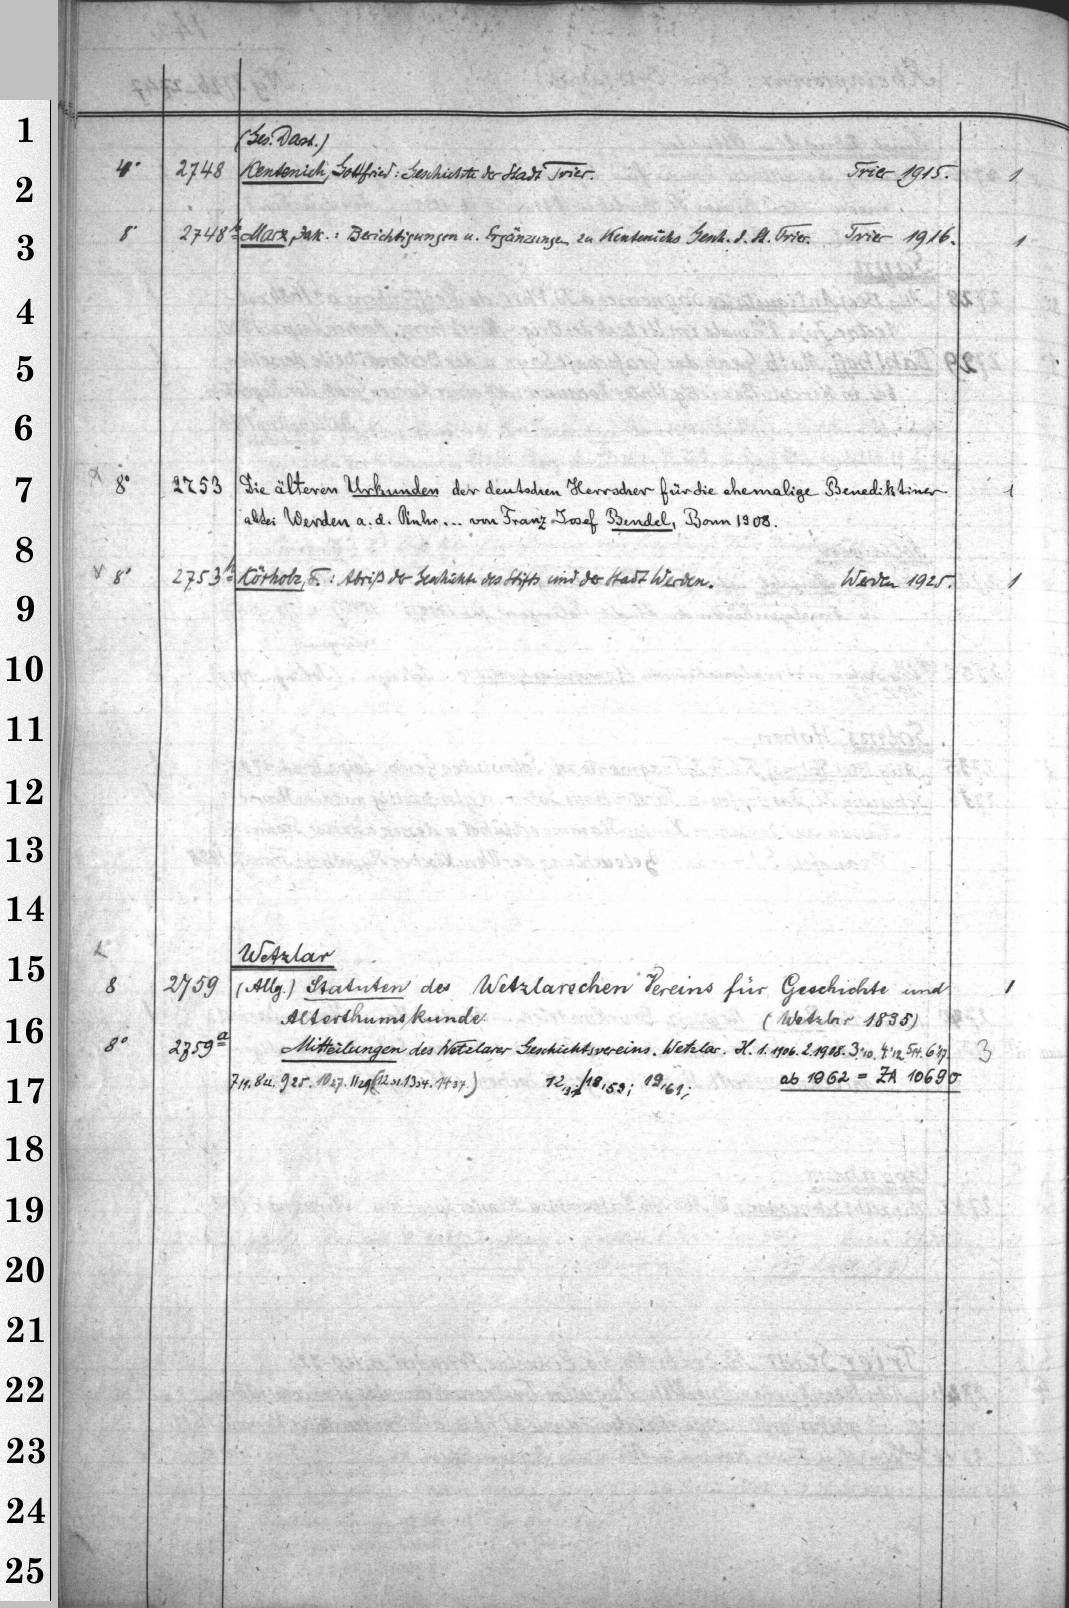 1
(Ges. Darst.)
2 4° 2748 Kentenich, Gottfried: Geschichte der Stadt Trier. Trier 1915. 1
3 8° 2748b Marx, Jak.: Berichtigungen u. Ergänzungen zu Kentenichs Gesch. d. St. Trier. Trier 1916. 1
4
5
6
7 8° 2753 Die älteren Urkunden der deutschen Herrscher für die ehemalige Benediktiner
abtei Werden a. d. Ruhr... von Franz Josef Bendel, Bonn 1908. 1
8
9 8° 2753b Körholz, F.: Abriß der Geschichte des Stifts und der Stadt Werden. Werden 1925. 1
10
11
12
13
14
15 Wetzlar
8 2759 (Allg.) Statuten des Wetzlarschen Vereins für Geschichte und 1
16 Alterthumskunde. (Wetzlar 1835)
8° 2759a Mitteilungen des Wetzlarer Geschichtsvereins. Wetzlar. H. 1.1906. 2.1908. 3.'10. 4.'12. 5.'14. 6.'17. 3
17 7,19. 8,21. 9,25. 10,27. 11,29. (12,31. 13,34. 14,37.) 12,37/18,59; 19,61; ab 1962 = ZA 10690
18
19
20
21
22
23
24
25